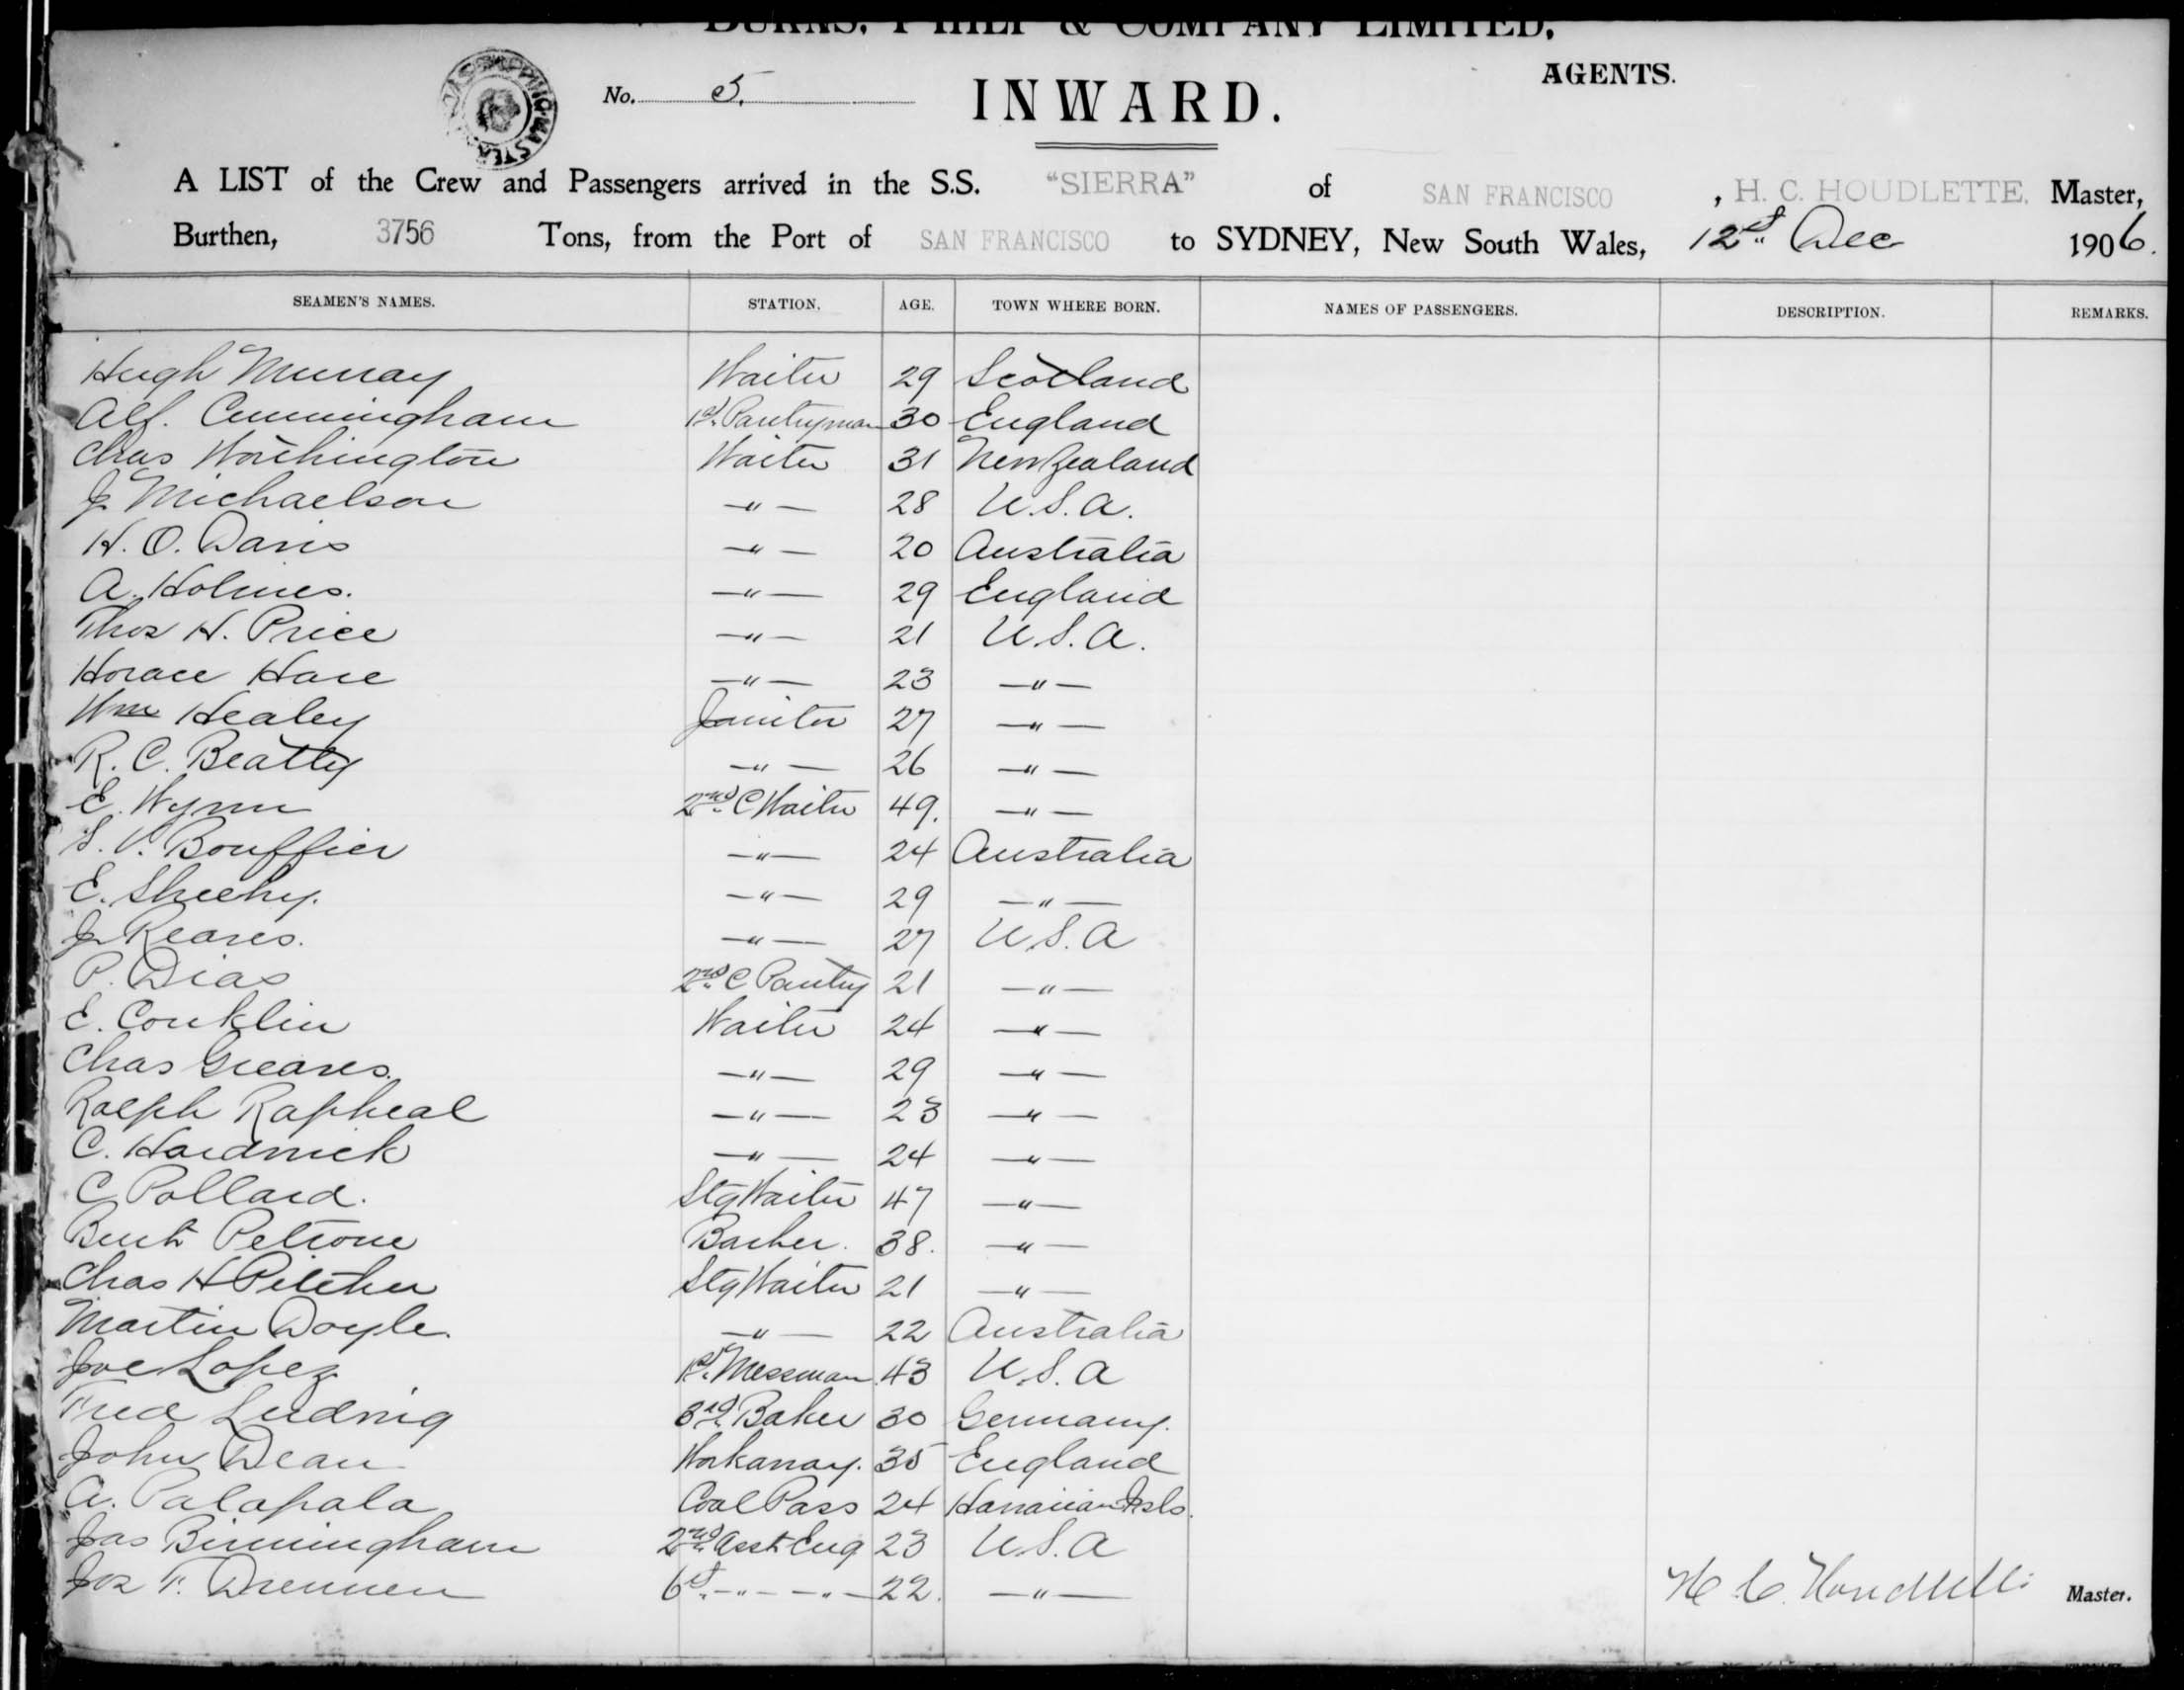 BURNS, PHILP & COMPANY LIMITED,
AGENTS.
No. 5.
INWARD.
A LIST of the Crew and Passengers arrived in the S.S. "SIERRA" of SAN FRANCISCO, H. C. HOUDLETTE, Master,
Burthen, 3756 Tons, from the Port of SAN FRANCISCO to SYDNEY, New South Wales, 12th Dec 1906.
SEAMEN'S NAMES. STATION. AGE. TOWN WHERE BORN. NAMES OF PASSENGERS. DESCRIPTION. REMARKS.
Hugh Murray Waiter 29 Scotland
Alf. Cunningham 1st Pantryman 30 England
Chas Washington Waiter 31 New Zealand
J. Michaelson -"- 28 U.S.A.
H. O. Davis -"- 20 Australia
A. Holmes. -"- 29 England
Thos H. Price -"- 21 U.S.A.
Horace Hare -"- 23 -"-
Wm Healey Janitor 27 -"-
R. C. Beatty -"- 26 -"-
E. Wynn 2nd C Waiter 49. -"-
S. V. Bouffier -"- 24 Australia
E. Sheehy. -"- 29 -"-
J. Reaves. -"- 27 U.S.A
P. Dias 2nd C Pantry 21 -"-
E. Conklin Waiter 24 -"-
Chas Greaves. -"- 29 -"-
Ralph Rapheal -"- 23 -"-
C. Hardwick -"- 24 -"-
C Pollard. Stg Waiter 47 -"-
Burt Petrone Barber. 38. -"-
Chas H Pilcher Stg Waiter 21 -"-
Martin Doyle. -"- 22 Australia
Joe Lopez 1st Messman 43 U.S.A
Fred Ludwig 3rd Baker 30 Germany.
John Dean Workaway. 35 England
A. Palapala Coal Pass 24 Hawaiian Isls.
Jas Birmingham 2nd Asst Eng 23 U.S.A
Jos F. Drennen 6th -"- -"- 22. -"-
H. C. Houdlette Master.